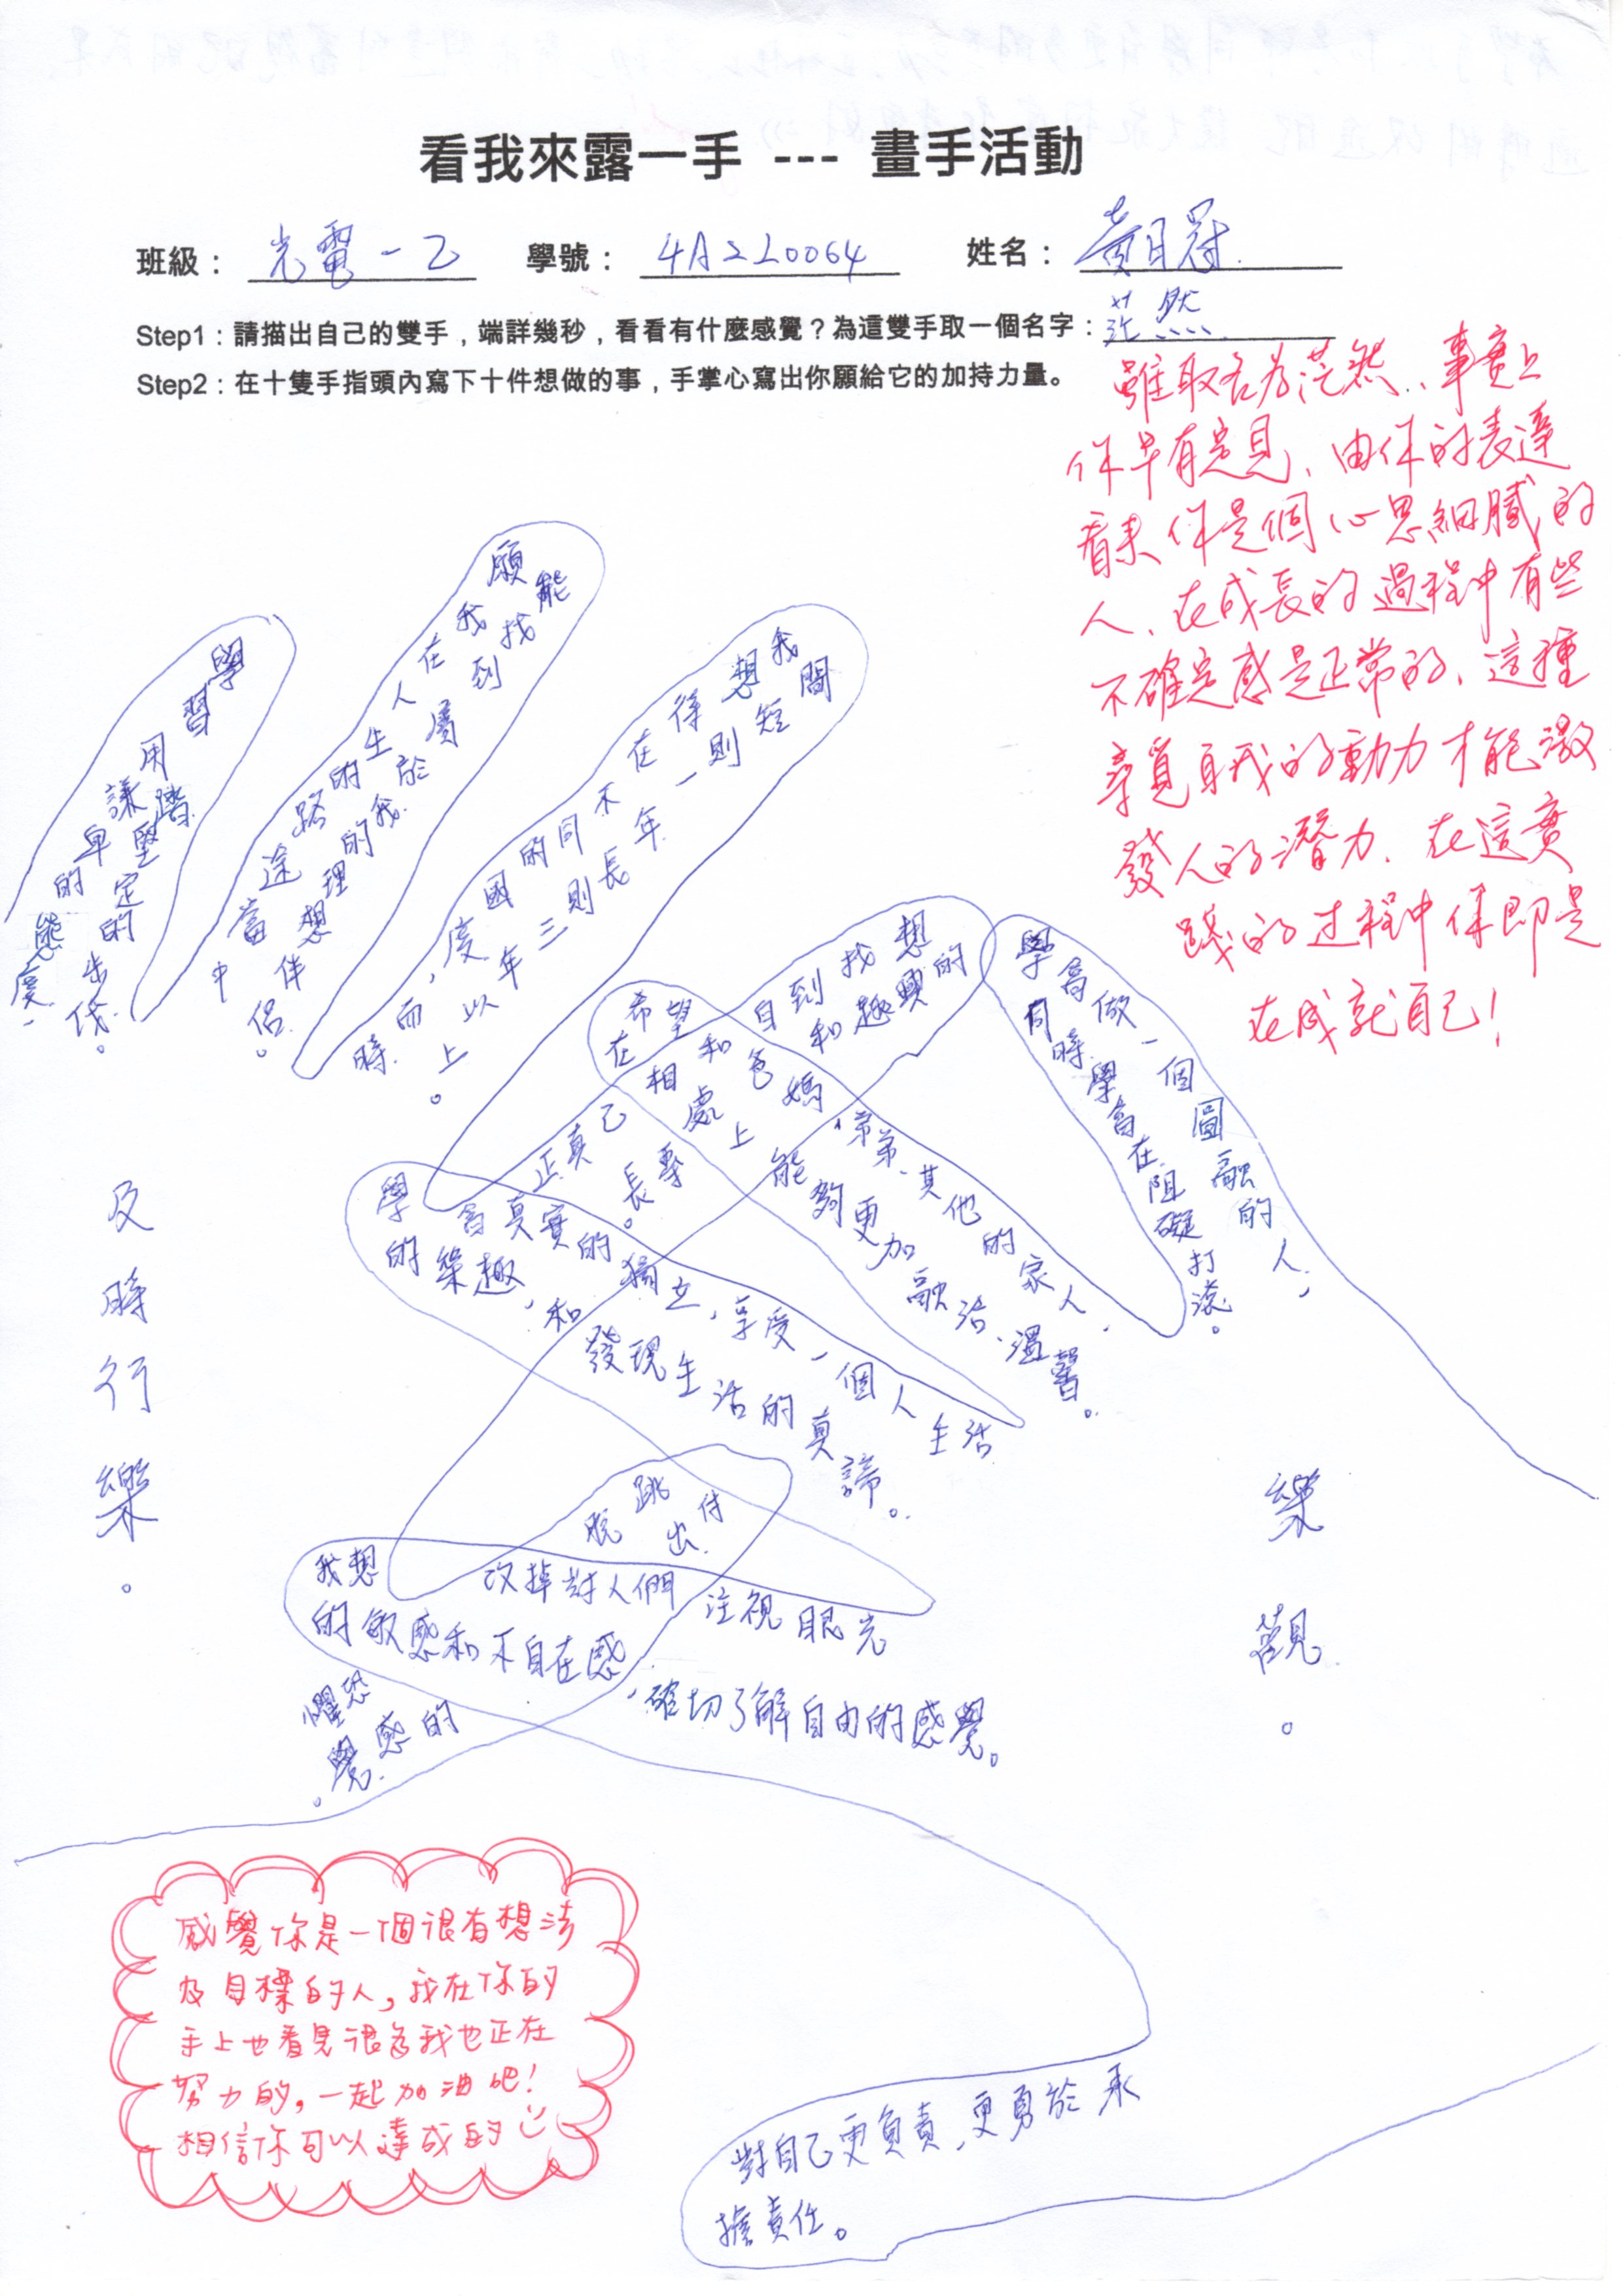 看我來露一手 --- 畫手活動
班級：光電一乙 學號：4A2L0064 姓名：黃月冠
Step1：請描出自己的雙手，端詳幾秒，看看有什麼感覺？為這雙手取一個名字：茫然
Step2：在十隻手指頭內寫下十件想做的事，手掌心寫出你願給它的加持力量。
雖取名為茫然、事實上
你早有定見、由你的表達
看來你是個心思細膩的
人、在成長的過程中有些
不確定感是正常的、這種
尋覓自我的動力才能激
發人的潛力、在這實
踐的过程中你即是
在成就自己！
學習用謙卑的態度，
踏堅定的步伐。
願我在人生的路途當中
能找到屬於我的理想伴侶。
我想待在不同的國度，而時
間短則一年長則三年以上。
想找到自己真正
的興趣和專長。
希望和爸媽、弟弟、其他的家人，
在相處上能夠更加融洽、溫馨。
學會做一個圓融的人，
同時學會在阻礙打滾。
學會真實的獨立，享受一個人生活
的樂趣，和發現生活的真諦。
跳脫
出付
恐懼
的感覺。
我想改掉對人們注視眼光
的敏感和不自在感，確切了解自由的感覺。
及時行樂。
樂觀。
對自己更負責，更勇於承
擔責任。
感覺你是一個很有想法
及目標的人，我在你的
手上也看見很多我也正在
努力的，一起加油吧！
相信你可以達成的